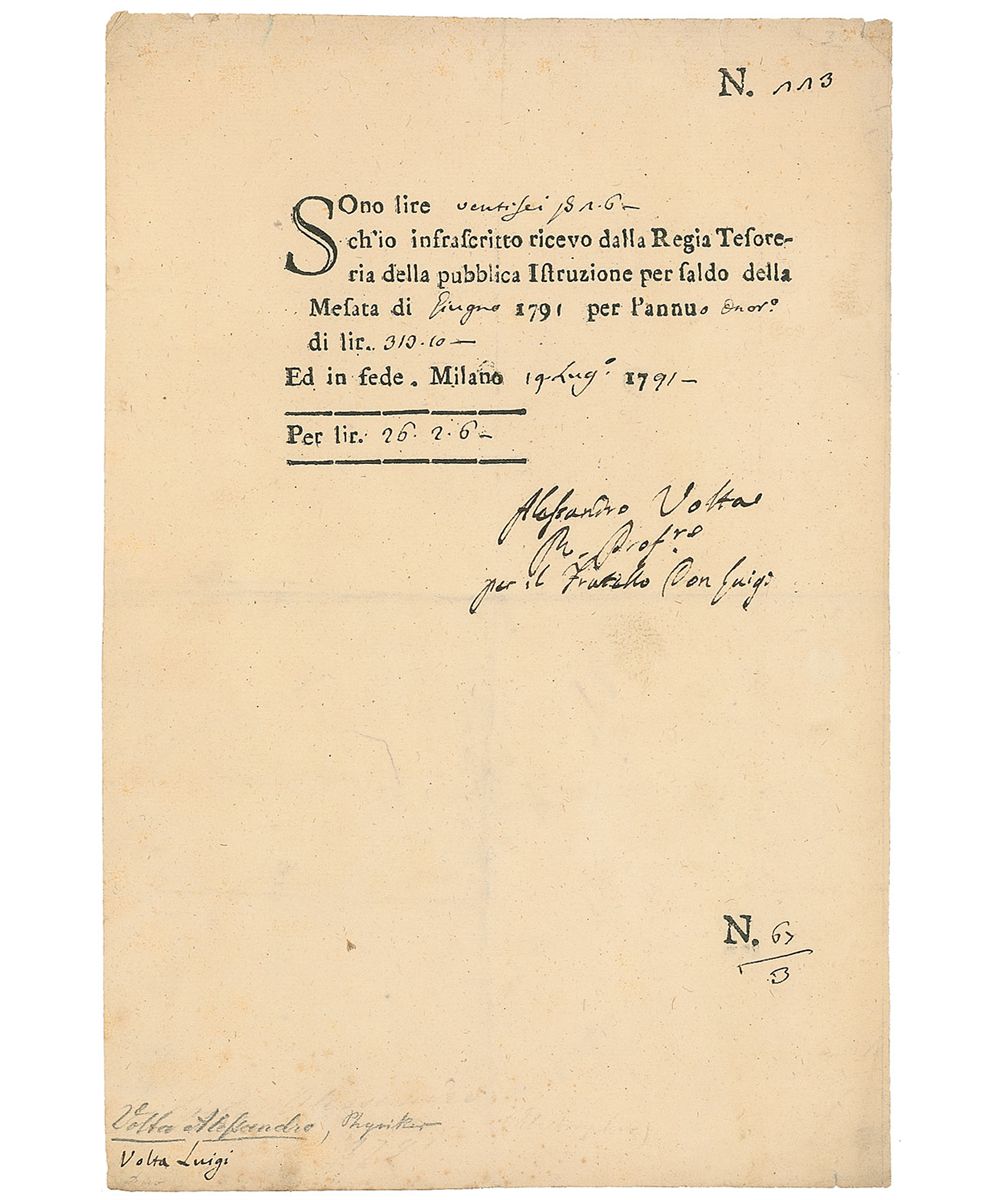 N. 113
SOno lire ventisei ß 2.6 –
ch'io infraſcritto ricevo dalla Regia Teſore-
ria della pubblica Iſtruzione per ſaldo della
Meſata di Giugno 1791 per l'annuo onor.º
di lir. 313.10 —
Ed in fede. Milano 19 Lug.º 1791 –
Per lir. 26. 2. 6 –
Aleſsandro Volta
R. Profre
per il Fratello Don Luigi
N. 67
3
Volta Aleſsandro, Physiker
Volta Luigi